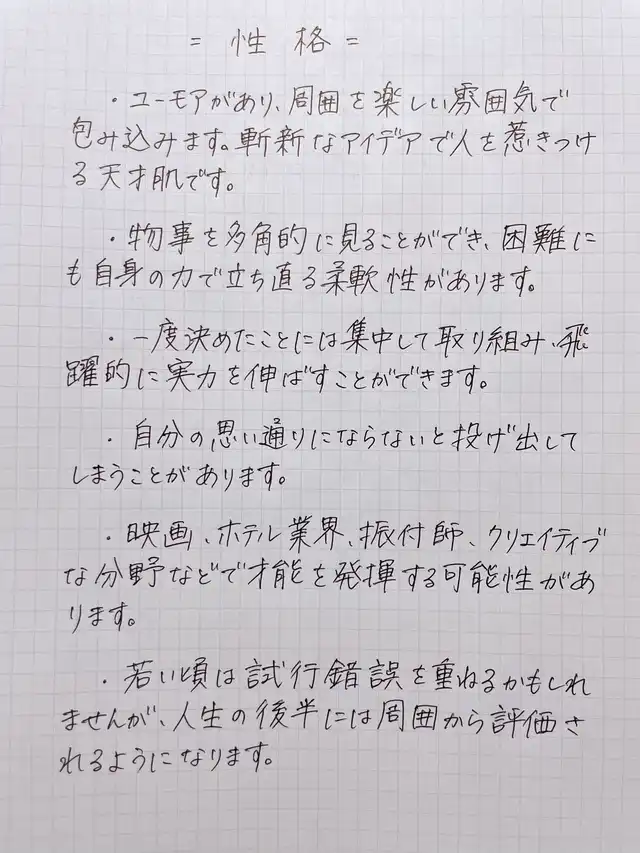 = 性格 =
・ユーモアがあり、周囲を楽しい雰囲気で
包み込みます。斬新なアイデアで人を惹きつけ
る天才肌です。
・物事を多角的に見ることができ、困難に
も自身の力で立ち直る柔軟性があります。
・一度決めたことには集中して取り組み、飛
躍的に実力を伸ばすことができます。
・自分の思い通りにならないと投げ出して
しまうことがあります。
・映画、ホテル業界、振付師、クリエイティブ
な分野などで才能を発揮する可能性があ
ります。
・若い頃は試行錯誤を重ねるかもしれ
ませんが、人生の後半には周囲から評価さ
れるようになります。